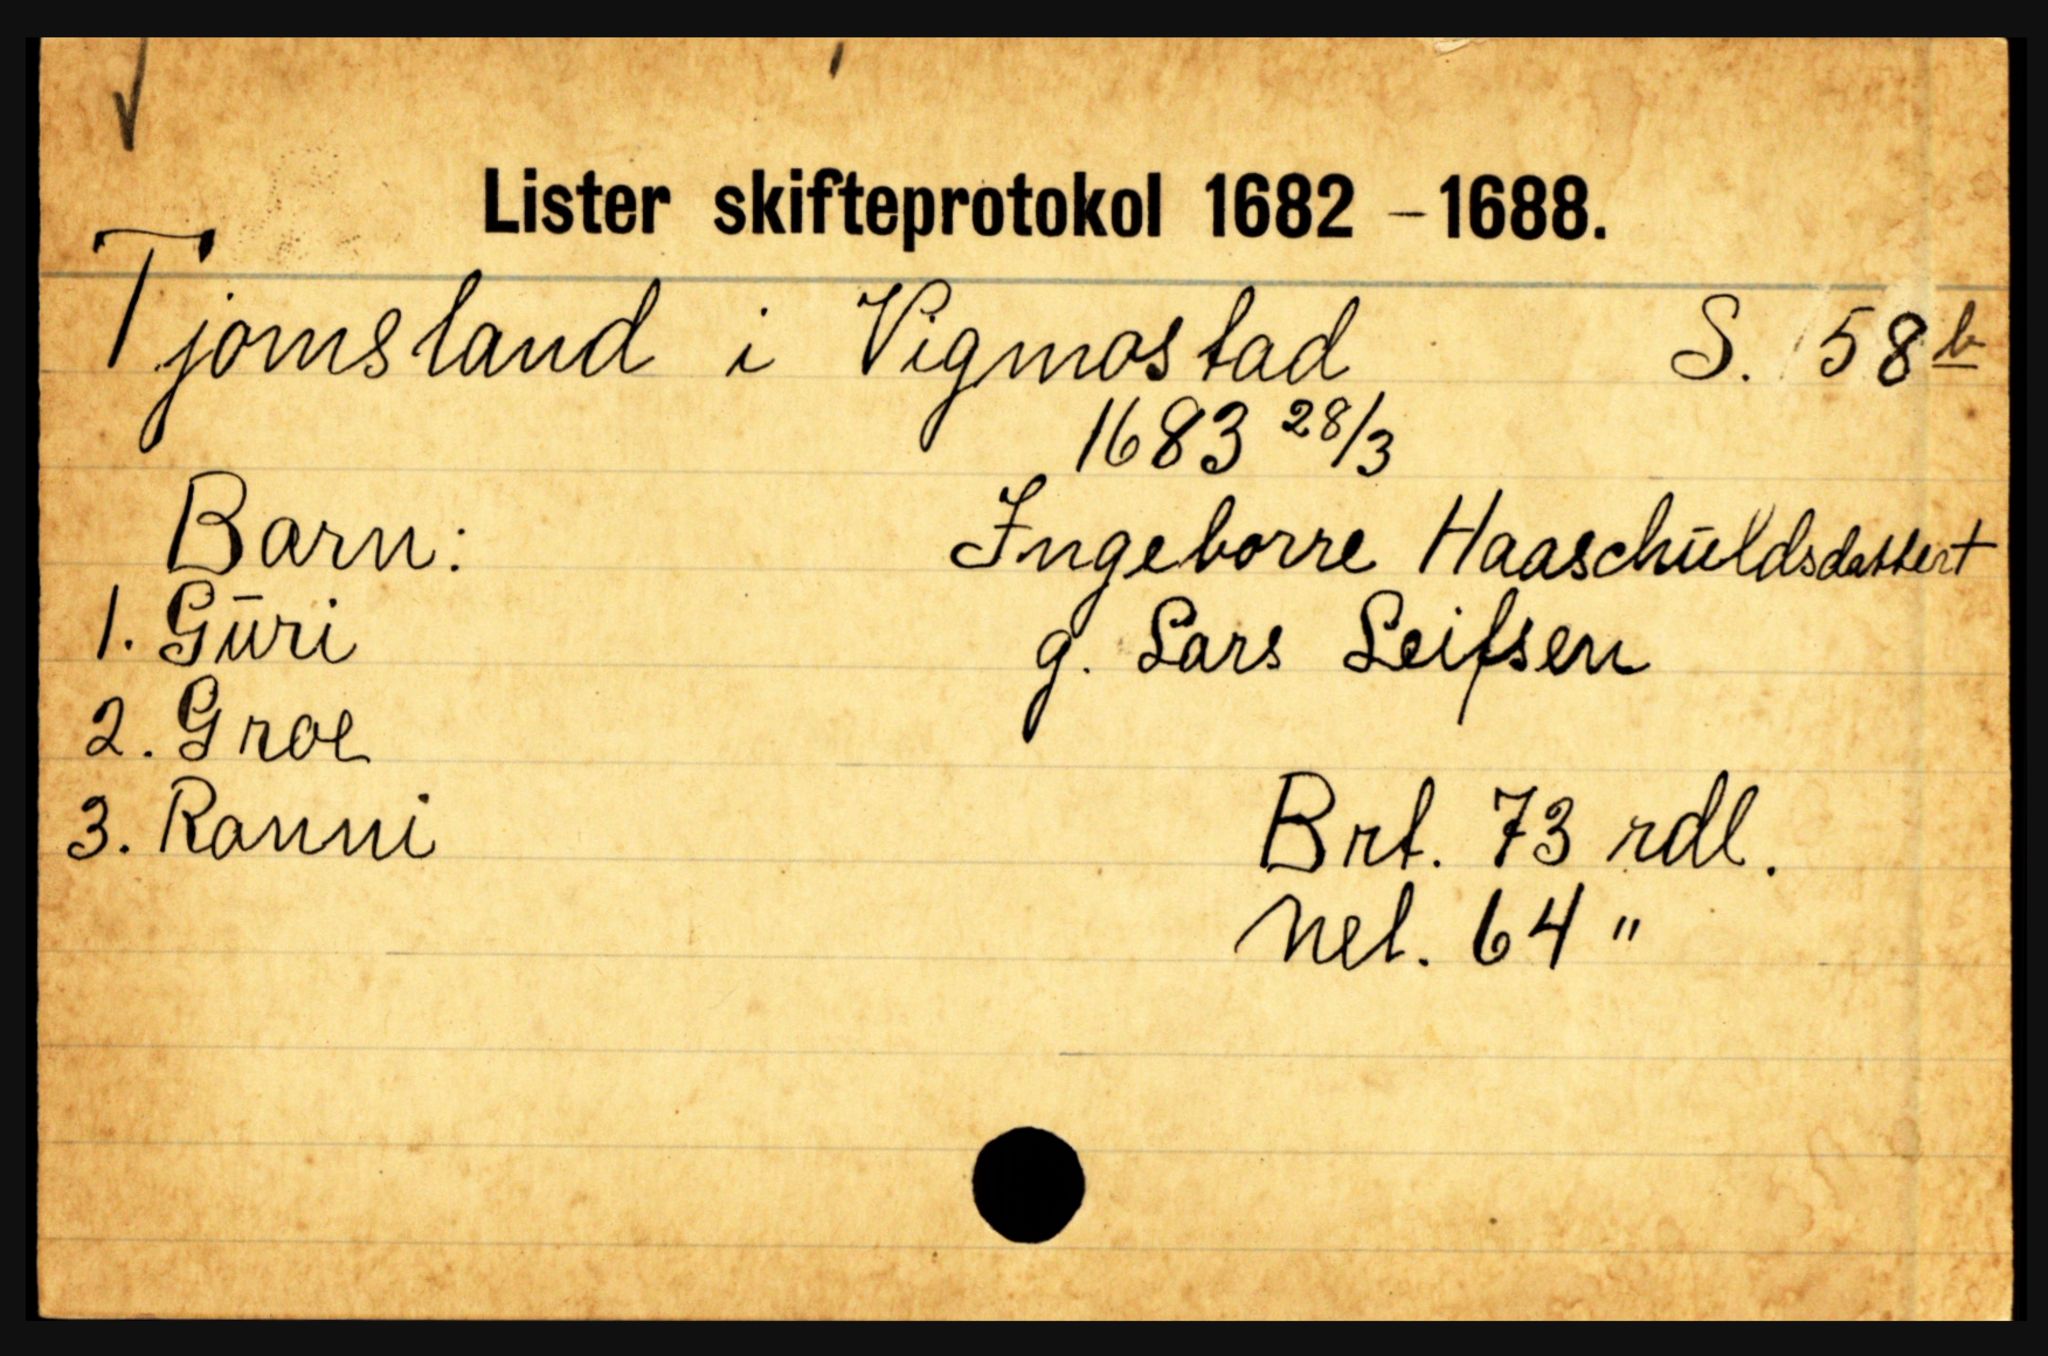 Lister skifteprotokol 1682 - 1688.
Tjomsland i Vigmostad S. 58 b
1683 28/3
Barn: Ingeborre Haaschūldsdatter t
1. Gūri g. Lars Leifsen
2. Groe
3. Ranni Brt. 73 rdl.
Net. 64 "